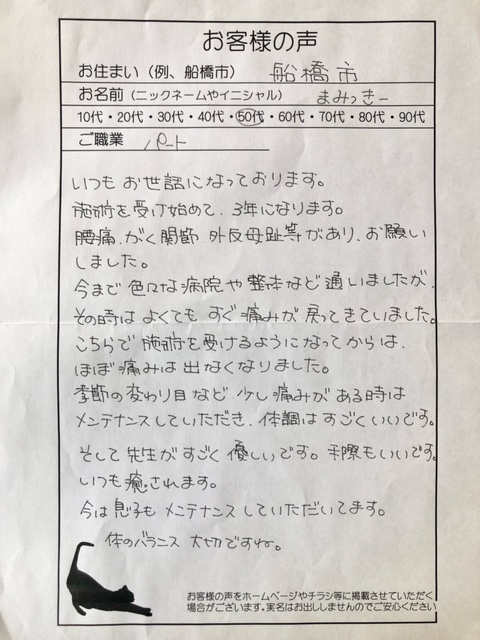 お客様の声
お住まい（例、船橋市） 船橋市
お名前（ニックネームやイニシャル） まみっきー
10代・20代・30代・40代・50代・60代・70代・80代・90代
ご職業 パート
いつもお世話になっております。
施術を受け始めて、3年になります。
腰痛、がく関節 外反母趾等があり、お願い
しました。
今まで色々な病院や整体など通いましたが、
その時はよくてもすぐ痛みが戻ってきていました。
こちらで施術を受けるようになってからは、
ほぼ痛みは出なくなりました。
季節の変わり目など少し痛みがある時は
メンテナンスしていただき、体調はすごくいいです。
そして先生がすごく優しいです。手際もいいです。
いつも癒されます。
今は息子もメンテナンスしていただいてます。
体のバランス大切ですね。
お客様の声をホームページやチラシ等に掲載させていただく
場合がございます。実名はお出ししませんのでご安心ください